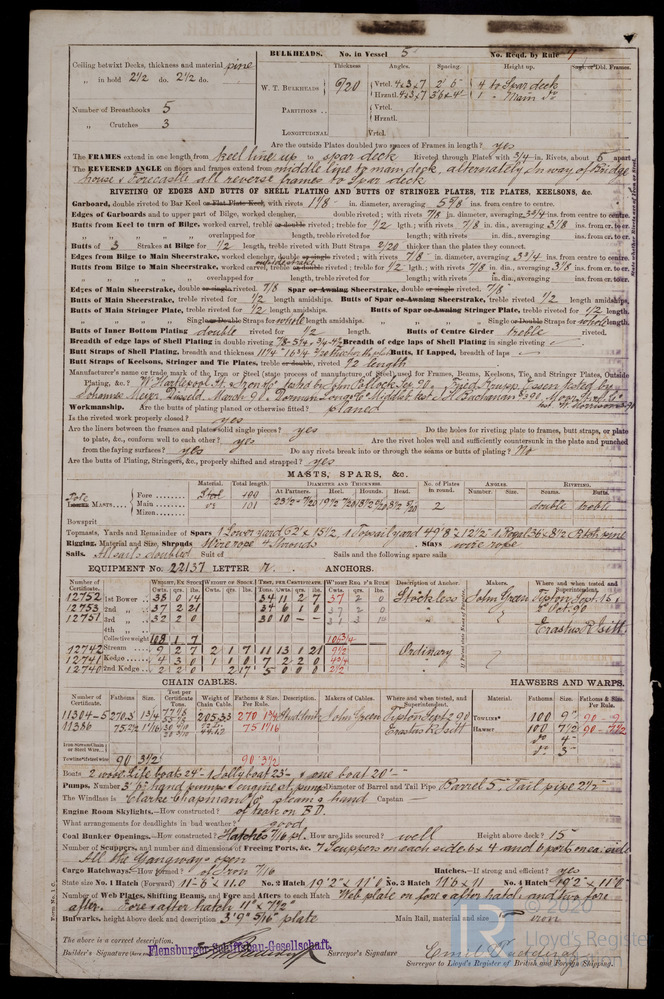 BULKHEADS. No. in Vessel 5 No. Reqd. by Rule 4
Ceiling betwixt Decks, thickness and material pine
" in hold 2½ do. 2½ do.
Thickness Angles. Spacing. Height up. Sngl. or Dbl. Frames.
W. T. BULKHEADS 6/20 Vrtcl. 4x3x7 2' 6" 4 to Spar deck
Hrzntl. 4x3x7 3'6x4' 1 " Main do
Number of Breasthooks 5
" Crutches 3
PARTITIONS Vrtcl.
Hrzntl.
LONGITUDINAL Vrtcl.
Are the outside Plates doubled two spaces of Frames in length? yes
The FRAMES extend in one length, from keel line up to spar deck Riveted through Plates with 3/4 in. Rivets, about 6 apart
The REVERSED ANGLE on floors and frames extend from middle line to main deck, alternately in way of Bridge
house & Forecastle all reverse frames to Spar deck
RIVETING OF EDGES AND BUTTS OF SHELL PLATING AND BUTTS OF STRINGER PLATES, TIE PLATES, KEELSONS, &c.
Garboard, double riveted to Bar Keel or Flat Plate Keel, with rivets 1 1/8 in. diameter, averaging 5 5/8 ins. from centre to centre.
Edges of Garboards and to upper part of Bilge, worked clencher, double riveted; with rivets 7/8 in. diameter, averaging 3 3/4 ins. from centre to centre.
Butts from Keel to turn of Bilge, worked carvel, treble or double riveted; treble for 1/2 lgth. with rivets 7/8 in. dia., averaging 3 1/8 ins. from cr. to cr.
" " " overlapped for length, treble riveted for length; with rivets in. dia., averaging ins. from cr. to cr.
Butts of 3 Strakes at Bilge for 1/2 length, treble riveted with Butt Straps 2/20 thicker than the plates they connect.
Edges from Bilge to Main Sheerstrake, worked clencher, double or single riveted; with rivets 7/8 in. diameter, averaging 3 3/4 ins. from centre to centre.
Butts from Bilge to Main Sheerstrake, worked carvel, treble or double riveted; treble for 1/2 lgth. with rivets 7/8 in. dia., averaging 3 1/8 ins. from cr. to cr.
" " " overlapped for length, treble riveted for length; with rivets in. dia., averaging ins. from cr. to cr.
Edges of Main Sheerstrake, double or single riveted. 7/8 Spar or Awning Sheerstrake, double or single riveted. 7/8
Butts of Main Sheerstrake, treble riveted for 1/2 length amidships. Butts of Spar or Awning Sheerstrake, treble riveted 1/2 length amidships.
Butts of Main Stringer Plate, treble riveted for 1/2 length amidships. Butts of Spar or Awning Stringer Plate, treble riveted for 1/2 length.
" " " Single or Double Straps for whole length amidships. " " " Single or Double Straps for whole length.
Butts of Inner Bottom Plating double riveted for 1/2 length. Butts of Centre Girder treble riveted.
Breadth of edge laps of Shell Plating in double riveting 7/8-5 1/4 & 3/4-4 1/2 Breadth of edge laps of Shell Plating in single riveting
Butt Straps of Shell Plating, breadth and thickness Butts, If Lapped, breadth of laps
Butt Straps of Keelsons, Stringer and Tie Plates, treble or double, riveted 1/2 length
Manufacturer's name or trade mark of the Iron or Steel (state process of manufacture of Steel) used for Frames, Beams, Keelsons, and Stringer Plates, Outside
Plating, &c.? W. Hartlepool St. & Iron Co tested by John Pollock Sep. 90, Fried. Krupp, Essen tested by
Johannes Meyer, March 90, Dorman Long & Co, Middlsb. test. J. H. Buchanan
Workmanship. Are the butts of plating planed or otherwise fitted? planed
Is the riveted work properly closed? yes
Are the liners between the frames and plates solid single pieces? yes Do the holes for riveting plate to frames, butt straps, or plate
to plate, &c., conform well to each other? yes Are the rivet holes well and sufficiently countersunk in the plate and punched
from the faying surfaces? yes Do any rivets break into or through the seams or butts of plating? No
Are the butts of Plating, Stringers, &c., properly shifted and strapped? yes
MASTS, SPARS, &c.
Material. Total length. DIAMETER AND THICKNESS. No. of Plates in round. ANGLES. RIVETING.
At Partners. Heel. Hounds. Head. Number. Size. Seams. Butts.
Pole
Lower MASTS Fore Steel 2 double treble
Main do 101
Mizen
Bowsprit
Topmasts, Yards and Remainder of Spars 1 Lower yard 62' x 15½, 1 Topsail yard 49'8" x 12½, 1 Royal 36' x 8½ Pitch pine
Rigging. Material and Size, Shrouds Wire rope 4 Shrouds Stays wire rope
Sails. All sails doubled Suit of Sails and the following spare sails
EQUIPMENT No. 22137 LETTER ANCHORS.
Number of Certificate. WEIGHT, EX STOCK WEIGHT OF STOCK TEST, PER CERTIFICATE. W'GHT REQ'D P'R RULE Description of Anchor. Makers. Where and when tested and Superintendent.
Cwts. qrs. lbs. Cwts. qrs. lbs. Tons. Cwts. qrs. lbs. Cwts. qrs. lbs.
12752 1st Bower 38 0 14 34 11 2 7 37 2 0 Stockless John Green Tipton Sept. 15 &
12753 2nd " 37 2 21 34 6 1 0 37 2 0 " " Oct. 90
12751 3rd " 32 2 0 30 10 – – 31 3 10
4th " Erastus R. Sitt.
Collective weight 108 1 7 106 3/4
12742 Stream 9 2 7 2 1 7 11 13 0 21 9½ Ordinary
12741 Kedge 4 3 0 1 1 0 7 2 2 0 4 3/4 "
12740 2nd Kedge 2 2 0 2 17 5 0 0 0 2½
CHAIN CABLES. HAWSERS AND WARPS.
Number of Certificate. Fathoms Size. Test per Certificate Tons. Weight of Chain Cable. Fathoms & Size Per Rule. Description. Makers of Cables. Where and when tested, and Superintendent. Material. Fathoms. Size. Fathoms & Size. Per Rule.
11304-5 270.3 1 3/4 205.3.3 270 1 3/4 Studlink John Green Tipton Sept 2 90 TOWLINE 100 9" 90 – 9
11386 75 1 1/16 Erastus R. Sitt HAWSER 100 7½ 90 – 7½
do 4"
Iron Stream Chain or Steel Wire do 3"
Towline Steel wire 90 3½ 90 3½
Boats 2 wood Life boats 24' – 1 Jolly boat 23' – & one boat 20' –
Pumps, Number 3 6½" hand pumps & engine st. pump Diameter of Barrel and Tail Pipe Barrel 5" Tail pipe 2½"
The Windlass is Clarke Chapman & Co steam & hand Capstan –
Engine Room Skylights.—How constructed? of teak on B.D.
What arrangements for deadlights in bad weather? good
Coal Bunker Openings.—How constructed? Hatches 7/16 pl. How are lids secured? well Height above deck? 15"
Number of Scuppers, and number and dimensions of Freeing Ports, &c. 7 scuppers on each side 6 x 4 and 6 ports on ea. side
All the Gangways open
Cargo Hatchways.—How formed? of Iron 7/16 Hatches.—If strong and efficient? yes
State size No. 1 Hatch (Forward) 11'-6" x 11.0 No. 2 Hatch 19'2" x 11'0 No. 3 Hatch 11'6 x 11 No. 4 Hatch 19'2" x 11'-0"
Number of Web Plates, Shifting Beams, and Fore and Afters to each Hatch Web plate on fore & after hatch and two fore
after. Fore & after hatch 11" x 7½"
Bulwarks, height above deck and description 3' 9" 5/16" plate Main Rail, material and size iron
The above is a correct description.
Builder's Signature Flensburger Schiffsbau-Gesellschaft. Surveyor's Signature
Surveyor to Lloyd's Register of British and Foreign Shipping.
Form No. 1 C.
© 2020
LR
Lloyd's Register
Foundation